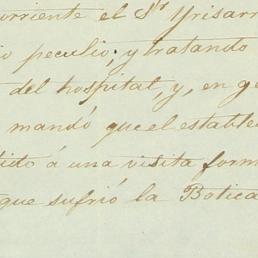 orriente el Sr Yrisarr
io peculio; y tratando
del hospital, y, en ge
mandó que el estable
tido á una visita form
que sufrió la Botica